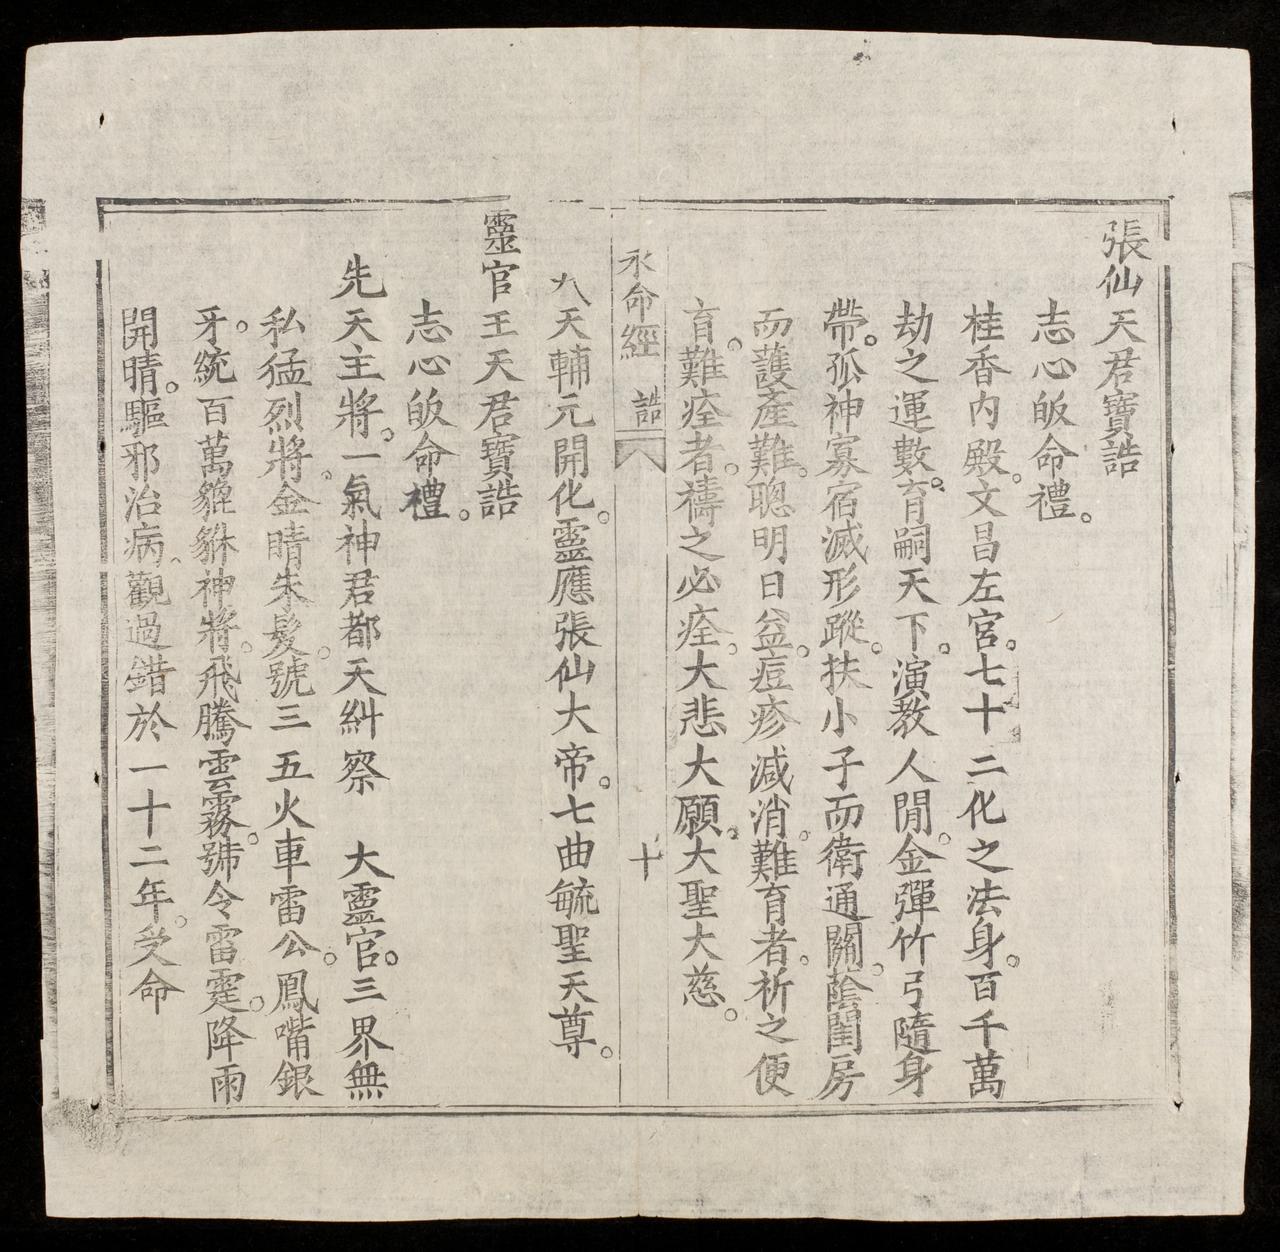 張仙天君寶誥
志心皈命禮。
桂香内殿。文昌左宮。七十二化之法身。百千萬
劫之運數。育嗣天下。演教人間。金彈竹弓隨身
帶。孤神寡宿滅形蹤。扶小子而衛通關。蔭閨房
而護產難。聰明日益。痘疹減消。難育者。祈之便
育。難痊者。禱之必痊。大悲大願。大聖大慈。
永命經 誥 十
九天輔元開化。靈應張仙大帝。七曲毓聖天尊。
靈官王天君寶誥
志心皈命禮。
先天主將。一氣神君都天糾察 大靈官。三界無
私猛烈將。金睛朱髮。號三五火車雷公。鳳嘴銀
牙。統百萬貔貅神將。飛騰雲霧。號令雷霆。降雨
開晴。驅邪治病。觀過錯於一十二年。受命